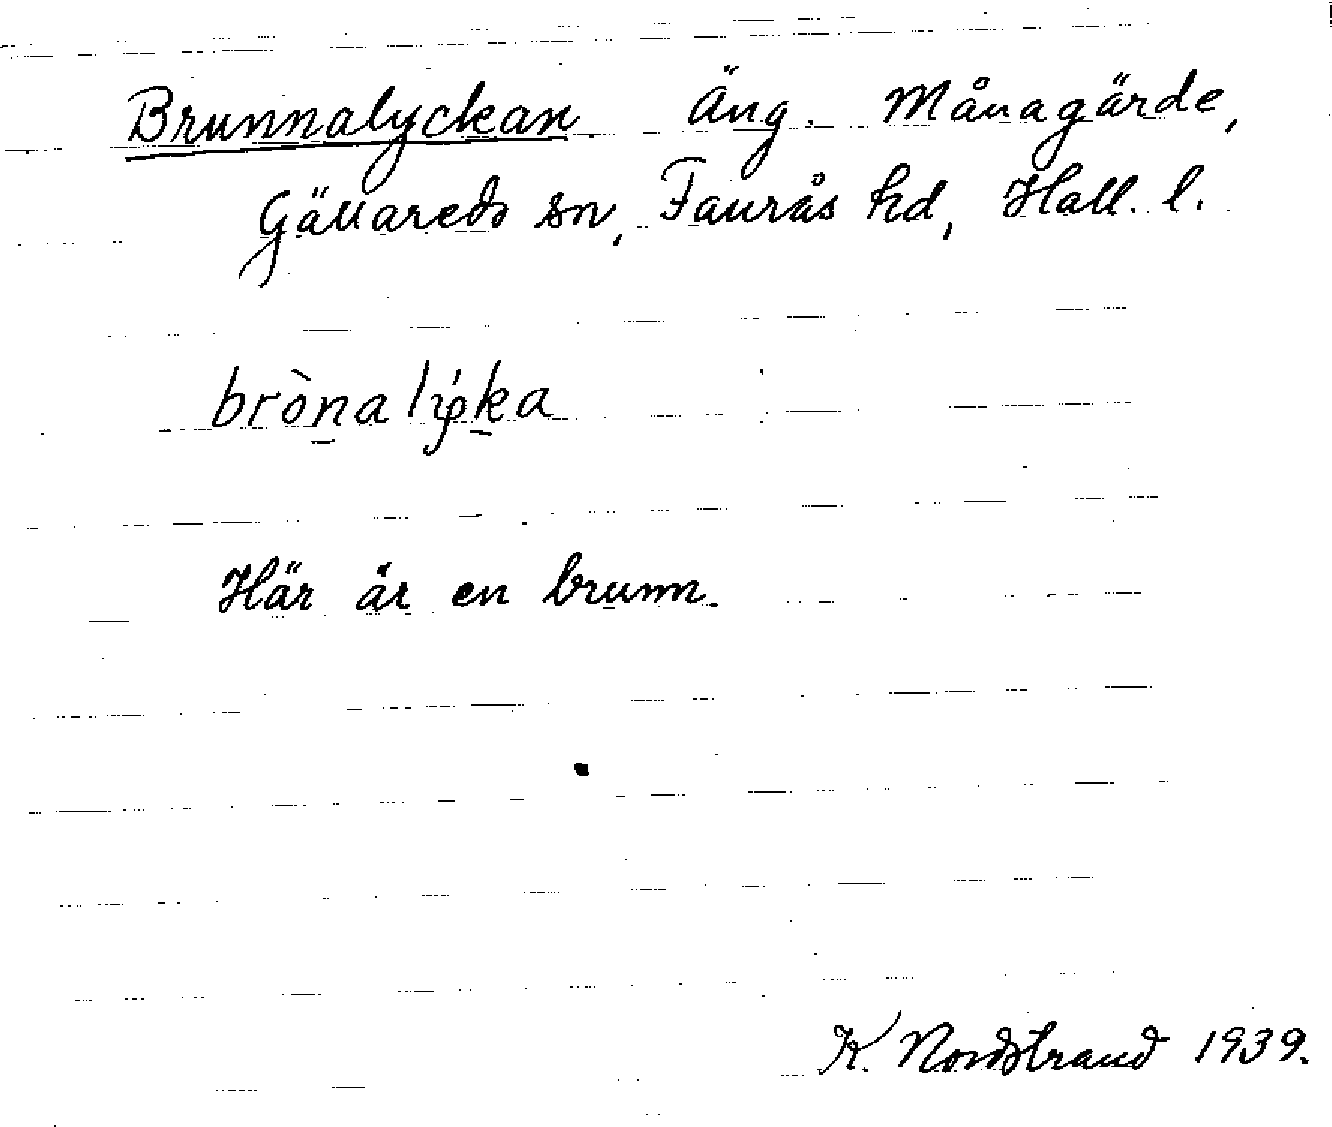 Brunnalyckan Äng. Månagärde,
Gällareds sn, Faurås hd, Hall. l.
bròna lýka
Här är en brunn.
K. Nordstrand 1939.